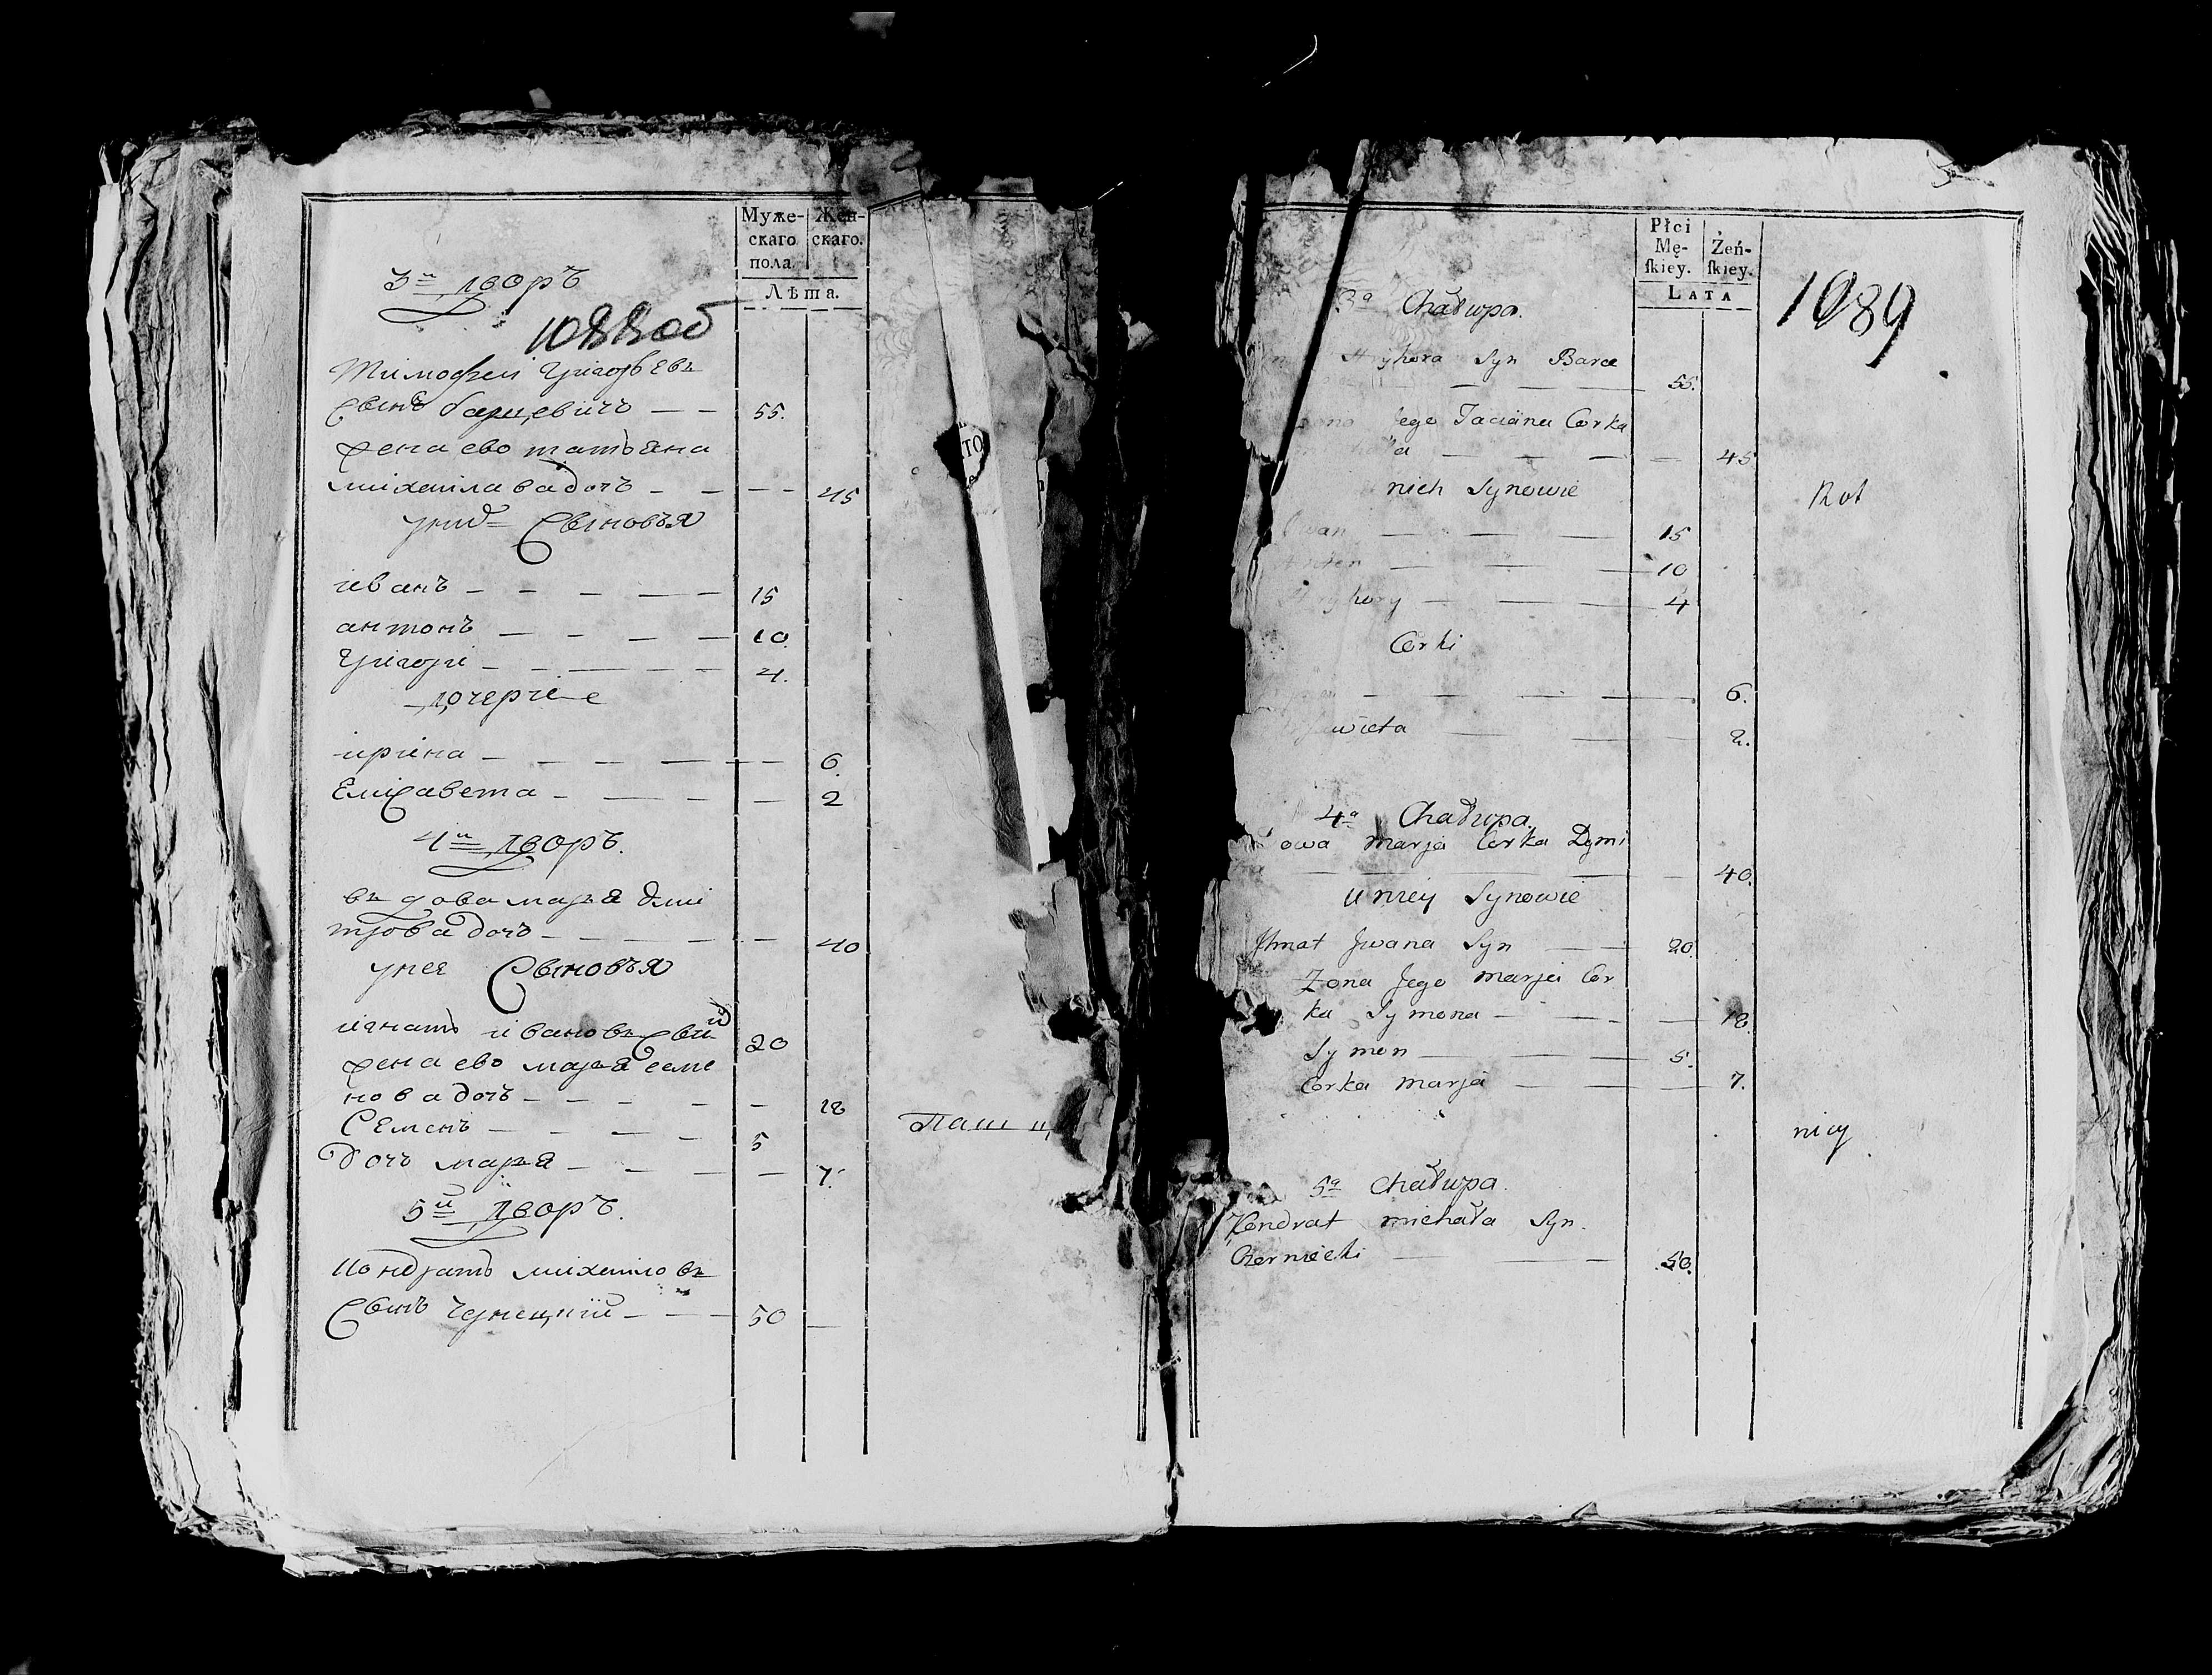 Муже- Жен-
скаго скаго.
пола.
Лѣта.
3й дворъ
1088об
Тимофеи Григорьевъ
Сынъ барцевичъ — — 55.
жена ево татьяна
михаилава дочь — — — 45
у них Сыновья
иванъ — — — — 15
антонъ — — — — 10.
Григори — — — — 4.
дочерие
ирина — — — — 6.
Елисавета — — — — 2
4й дворъ.
вдова марья дми
трова дочь — — — — 40
у нея Сыновья
игнатъ ивановъ Сын 20
жена ево марья семе
нова дочь — — — — 18
Семенъ — — — — 5
дочь марья — — — — 7.
5й дворъ.
Кондратъ михаиловъ
Сынъ Чернецкий — — — 50
Паш
ТО
Płci Żeń-
Mę- ſkiey.
ſkiey.
LATA
1089
3a Chałupa.
Hryhora Syn Barce
— — — 55.
Jego Taciana Corka
— — — — 45
nich Synowie
Rot
Iwan — — — 15
Anton — — — 10
Hryhory — — — 4
Corki
— — — 6.
wieta — — — 2.
4a Chałupa.
owa marja Corka Dymi
tra — — — — 40.
u niey Synowie
Ihnat Jwana Syn — — 20.
Zona Jego marja Cor
ka Symona — — — 18.
Symon — — — 5.
Corka marja — — — 7.
nicy
5a Chałupa.
Kondrat michała Syn.
Czerniecki — — 50.